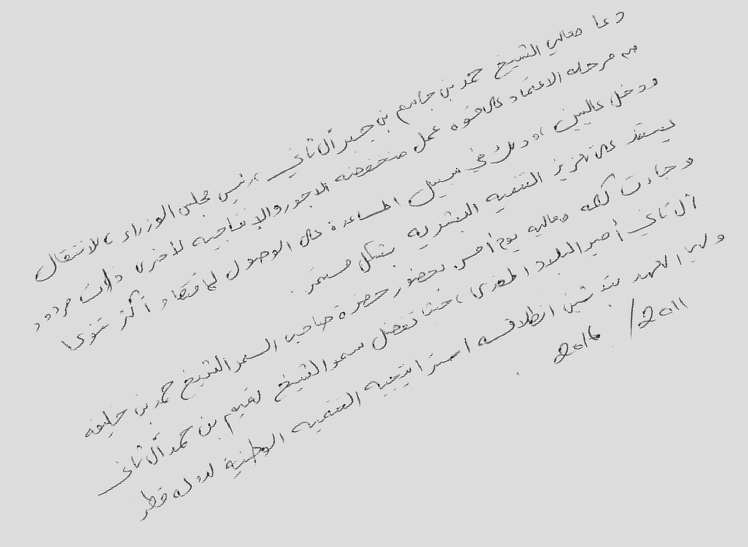 دعا معالي الشيخ حمد بن جاسم بن جبر آل ثاني رئيس مجلس الوزراء بالانتقال
من مرحلة الاعتماد على قوة عمل منخفضة الاجور والإنتاجية لأخرى ذات مردود
ودخل عاليين ، وذلك في سبيل المساعدة على الوصول لاقتصاد أكثر تنوعا
يستند على تعزيز التنمية البشرية بشكل مستمر .
وجاءت كلمة معاليه يوم أمس بحضور حضرة صاحب السمو الشيخ حمد بن خليفه
آل ثاني أمير البلاد المفدى ، حيث تفضل سمو الشيخ تميم بن حمد آل ثاني
ولي العهد بتدشين انطلاقة استراتيجية التنمية الوطنية لدولة قطر
2011 / 2016 .